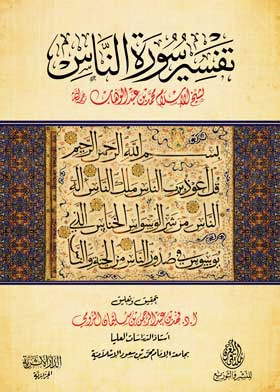 تفسير سورة الناس
لشيخ الإسلام محمد بن عبد الوهاب رحمه الله
بسم الله الرحمن الرحيم
قل أعوذ برب الناس ملك الناس إله
الناس من شر الوسواس الخناس الذي
يوسوس في صدور الناس من الجنة والناس
تحقيق وتعليق
أ.د. فهد بن عبد الرحمن بن سليمان الرومي
أستاذ الدراسات العليا
بجامعة الإمام محمد بن سعود الإسلامية
الدار الأثرية
للنشر والتوزيع